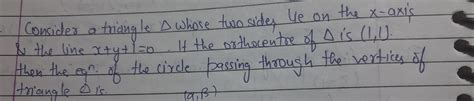 Consider a triangle Δ whose two sides lie on the x-axis
& the line x+y+1=0. If the orthocentre of Δ is (1,1).
then the eqn. of the circle passing through the vertices of
triangle Δ is.
(α,β)